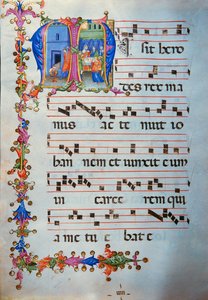 Misit hero
des rex ma
nus ac te nuit io
han nem et uinxit eum
in carce rem qui
a me tu e bat e